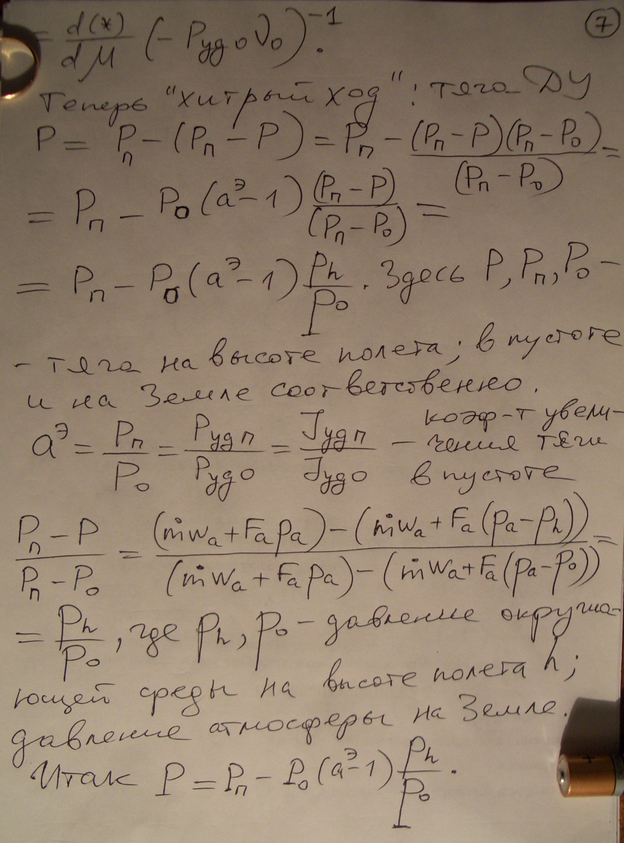 7
= d(*)/dM (-Pуд0 ν0)^-1.
Теперь "хитрый ход": тяга ДУ
P = Pп - (Pп - P) = Pп - (Pп - P)(Pп - P0)/(Pп - P0) =
= Pп - P0 (aэ - 1) (Pп - P)/(Pп - P0) =
= Pп - P0 (aэ - 1) ph/p0. Здесь P, Pп, P0 -
- тяга на высоте полета; в пустоте
и на Земле соответственно.
aэ = Pп/P0 = Pудп/Pуд0 = Jудп/Jуд0 - коэф-т увели-
чения тяги
в пустоте
(Pп - P)/(Pп - P0) = ((ṁwa + Fapa) - (ṁwa + Fa(pa - ph)))/((ṁwa + Fapa) - (ṁwa + Fa(pa - p0))) =
= ph/p0, где ph, p0 - давление окружа-
ющей среды на высоте полета h;
давление атмосферы на Земле.
Итак P = Pп - P0 (aэ - 1) ph/p0.